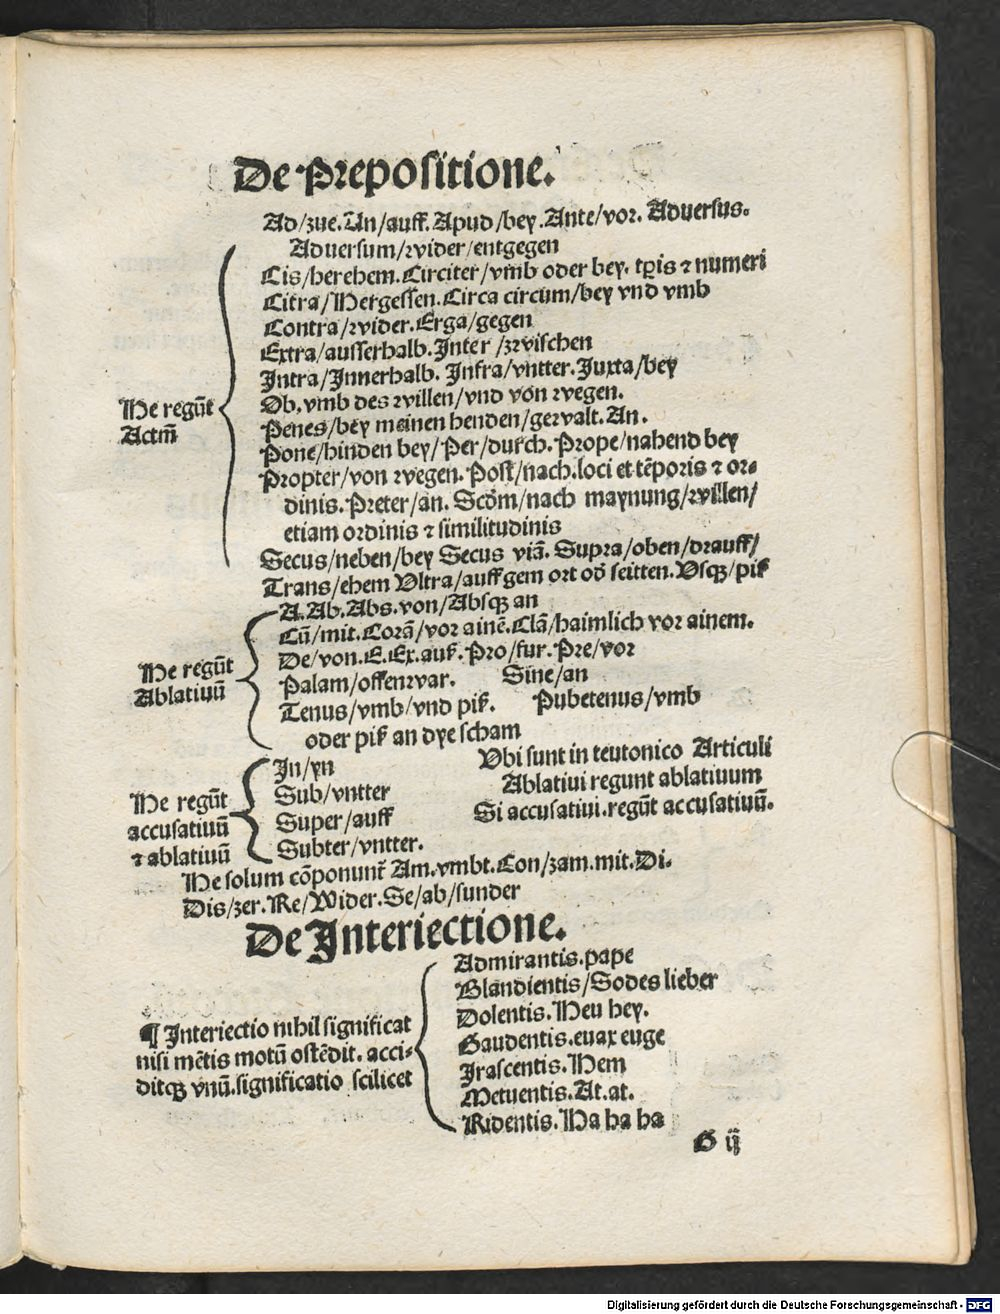 De Prepositione.
Ad/zue. An/auff. Apud/bey. Ante/vor. Adversus.
Adversum/wider/entgegen
Cis/herehem. Circiter/vmb oder bey. tp̄is ⁊ numeri
Citra/Hergessen. Circa circum/bey vnd vmb
Contra/wider. Erga/gegen
Extra/ausserhalb. Inter/zwischen
Intra/Innerhalb. Infra/vntter. Juxta/bey
Ob. vmb des willen/vnd von wegen.
He regūt
Actm̄
Penes/bey meinen henden/gewalt. An.
Pone/hinden bey/Per/durch. Prope/nahend bey
Propter/von wegen. Post/nach. loci et tēporis ⁊ or-
dinis. Preter/an. Scōm/nach maynung/willen/
etiam ordinis ⁊ similitudinis
Secus/neben/bey Secus viā. Supra/oben/drauff/
Trans/ehem Vltra/auff gem ort oď seitten. Vsqꝫ/piß
A. Ab. Abs. von/Absqꝫ an
Cū/mit. Corā/vor ainē. Clā/haimlich vor ainem.
De/von. E. Ex. auß. Pro/fur. Pre/vor
He regūt
Ablativū
Palam/offenwar. Sine/an
Tenus/vmb/vnd piß. Pubetenus/vmb
oder piß an dye scham
In/yn
Sub/vntter
Super/auff
Subter/vntter.
He regūt
accusativū
⁊ ablativū
Vbi sunt in teutonico Articuli
Ablativi regunt ablativum
Si accusativi. regūt accusativū.
He solum cōponunt᷑ Am. vmbt. Con/zam. mit. Di.
Dis/zer. Re/Wider. Se/ab/sunder
De Interiectione.
¶ Interiectio nihil significat
nisi mētis motū ostēdit. acci-
ditqꝫ vnū. significatio scilicet
Admirantis. pape
Blandientis/Sodes lieber
Dolentis. Heu hey.
Gaudentis. evax euge
Irascentis. Hem
Metuentis. At. at.
Ridentis. Ha ha ha
G ij
Digitalisierung gefördert durch die Deutsche Forschungsgemeinschaft - DFG